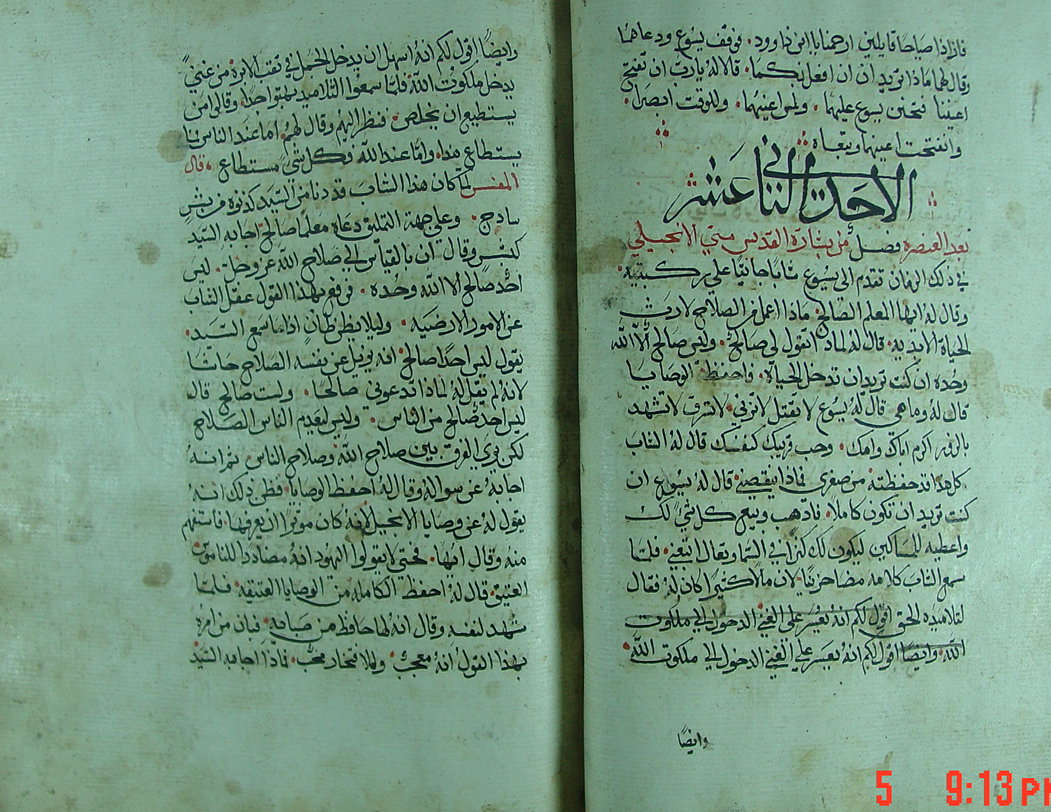 فازادا صياحا قايلين ارحمنا يا ابن داوود. فوقف يسوع ودعاهما
وقال لهما ماذا تريدان ان افعل بكما. قالا له يا رب ان تفتح
اعيننا فتحنن يسوع عليهما. ولمس اعينهما. وللوقت ابصرا.
وانفتحت اعينهما وتبعاه
الاحد الثاني عشر
بعد العنصره فصل من بشارة القديس متي الانجيلي
في ذلك الزمان تقدم الى يسوع شابا جاثيا على ركبتيه.
وقال له ايها المعلم الصالح. ماذا اعمل من الصلاح لارث
الحياة الابديه. قال له لماذا تقول لي صالح. وليس صالح الا الله
وحده ان كنت تريد ان تدخل الحياة. واحفظ الوصايا
قال له وما هي قال له يسوع لا تقتل لا تزني. لا تسرق لا تشهد
بالزور اكرم اباك وامك. وحب قريبك كنفسك قال له الشاب
كل هذا قد حفظته من صغري فماذا ينقصني قال له يسوع ان
كنت تريد ان تكون كاملا. فاذهب وبيع كل شي لك
واعطيه للمساكين ليكون لك كنز في السما وتعال اتبعني. فلما
سمع الشاب كلامه مضا حزينا. لان مالا كثيرا كان له فقال
لتلاميذه الحق اقول لكم انه يعسر على الغني الدخول الى ملكوت
الله. وايضا اقول لكم انه يعسر علي الغني الدخول الى ملكوت الله
وايضا
وايضا اقول لكم انه اسهل ان يدخل الجمل في ثقب الابرة من غني
يدخل ملكوت الله فلما سمعوا التلاميذ بهتوا جدا. وقالوا من
يستطيع ان يخلص. فنظر اليهم وقال لهم اما عند الناس فما
يستطاع هذا. واما عند الله فكل شي مستطاع. قال
المفسر لما كان هذا الشاب قد دنا من السيد كدنوه من بشر
سادج. وعلى جهة التملق دعاه معلما صالح اجابه السيد
كبشر وقال ان بالقياس الى صلاح الله عز وجل. ليس
احد صالح الا الله وحده. فرفع بهذا القول عقل الشاب
عن الامور الارضيه. وليلا يظن ظان اذا ما سمع السيد.
يقول ليس احدا صالح. انه يزيل عن نفسه الصلاح حاشا
لانه لم يقل له لماذا تدعوني صالحا. ولست صالح قال
ليس احد صالح من الناس. وليس يعدم الناس الصلاح
لكن يري الفرق بين صلاح الله وصلاح الناس ثم انه
اجابه عن سواله وقال له احفظ الوصايا. فظن ذلك انه
يقول له عن وصايا الانجيل لانه كان موثرا ان يعرفها. فاستفهم
منه وقال ايها. فحتى لا يقولوا اليهود انه مضادد للناموس
العتيق قال له احفظ الكامله من الوصايا العتيقة فلما
شهد لنفسه وقال انه لها حافظ من صباته. فبان من امره
بهذا القول انه معجب. وللافتخار محب. فاذا اجابه السيد
5 9:13 PM